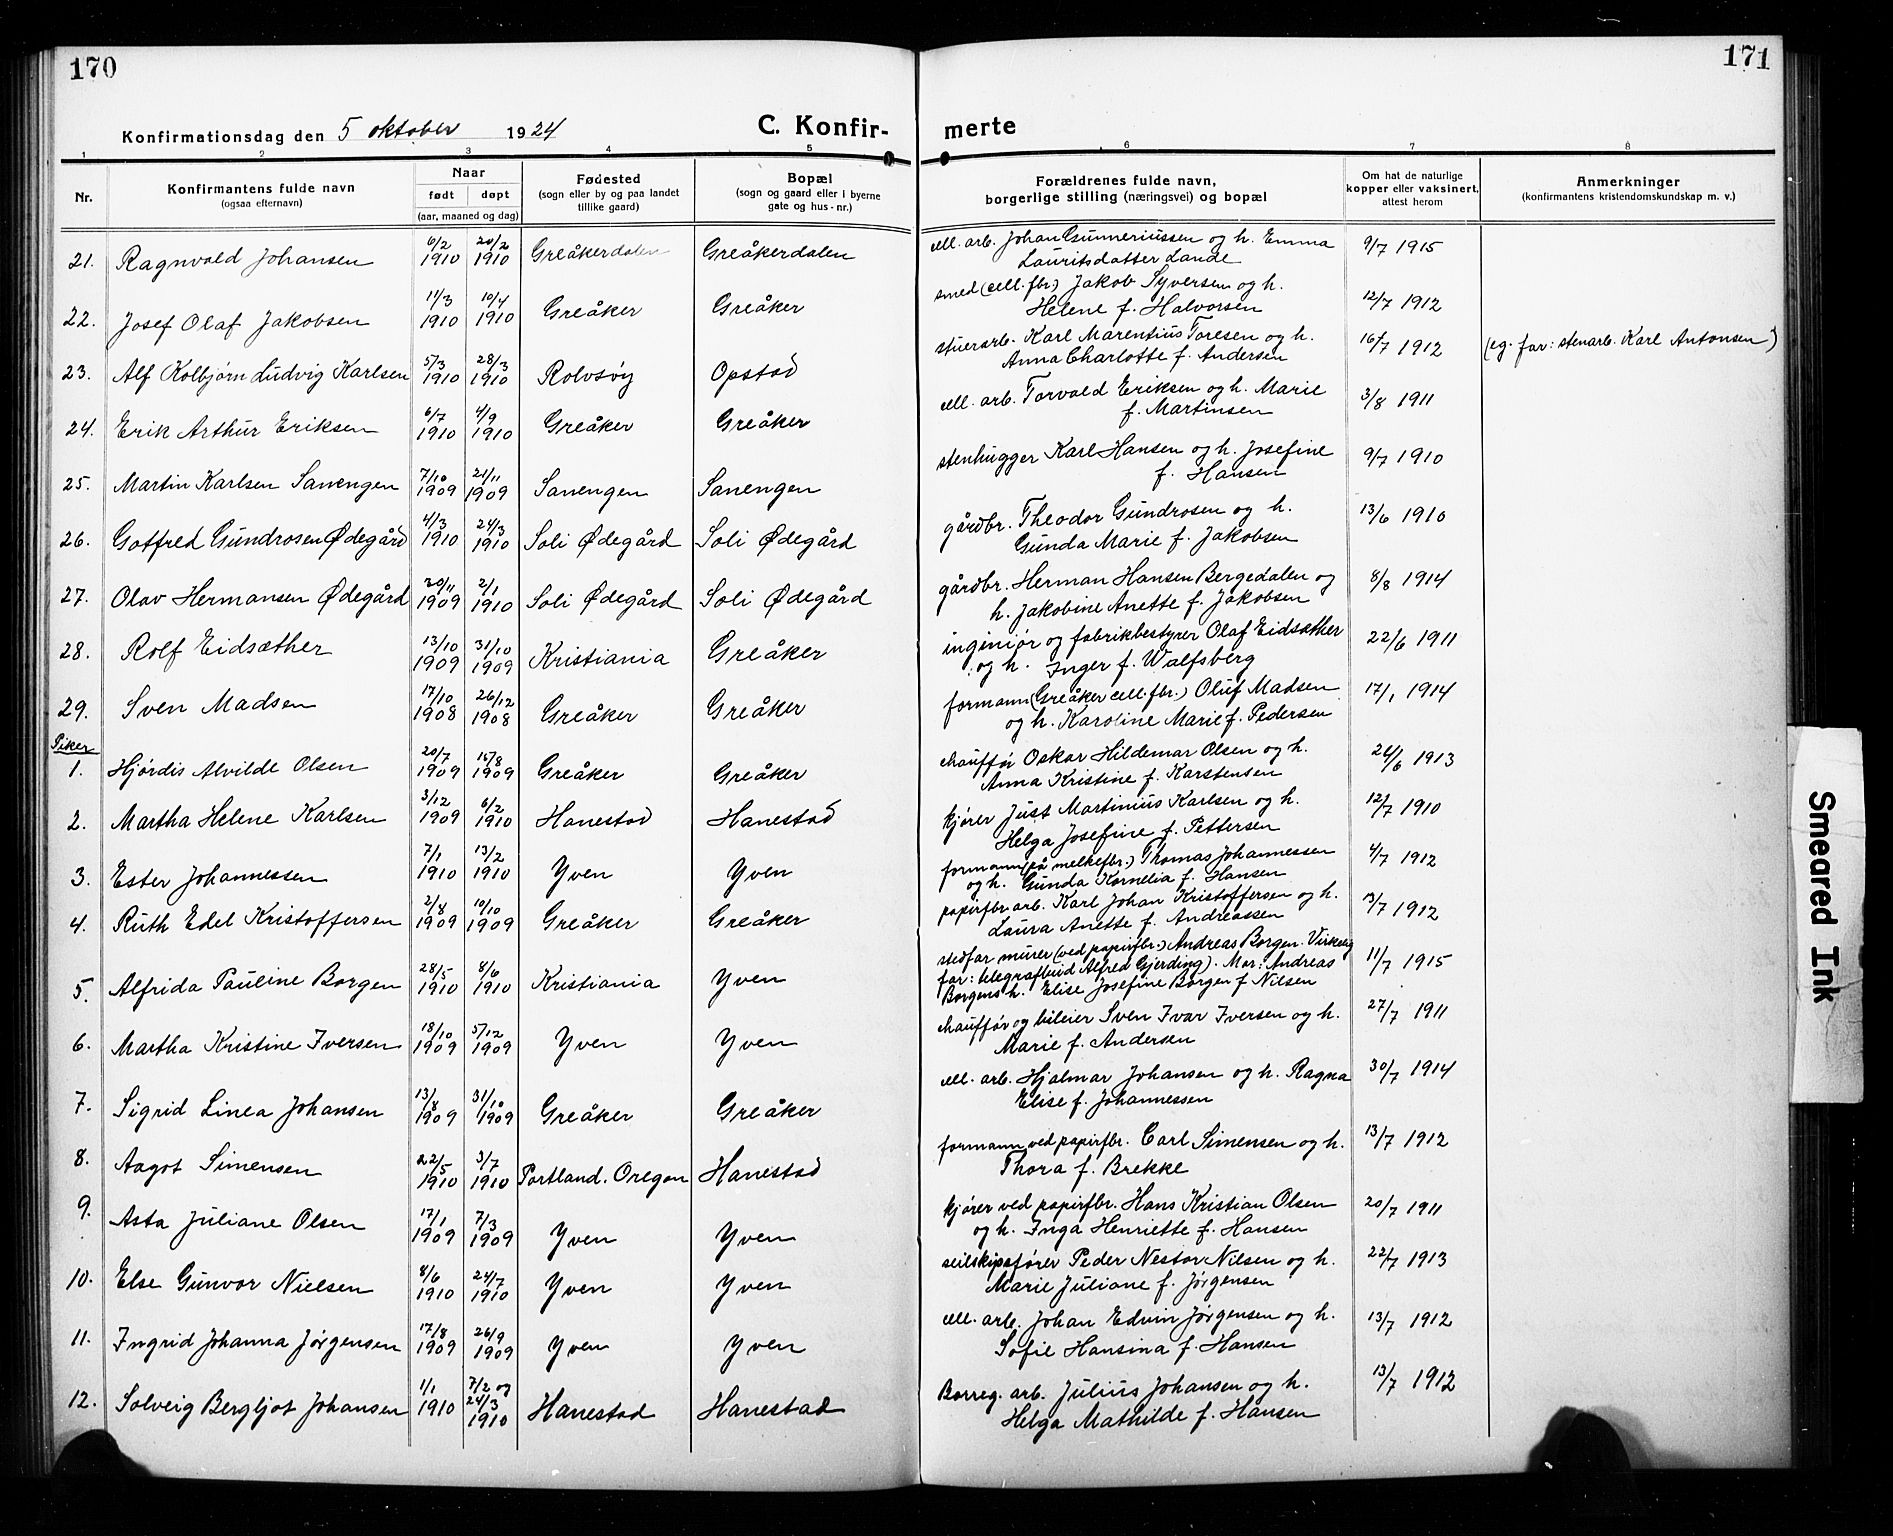 170
171
Konfirmationsdag den 5 oktober 1924
C. Konfir-
merte
1 2 3 4 5 6 7 8
Nr.
Konfirmantens fulde navn
(ogsaa efternavn)
Naar
født døpt
(aar, maaned og dag)
Fødested
(sogn eller by og paa landet
tillike gaard)
Bopæl
(sogn og gaard eller i byerne
gate og hus-nr.)
Forældrenes fulde navn,
borgerlige stilling (næringsvei) og bopæl
Om hat de naturlige
kopper eller vaksinert,
attest herom
Anmerkninger
(konfirmantens kristendomskundskap m. v.)
21. Ragnvald Johansen 6/2 1910 20/2 1910 Greåkerdalen Greåkerdalen cell. arb. Johan Gunneriussen og h. Emma
Lauritsdatter Lande 9/7 1915
22. Josef Olaf Jakobsen 11/3 1910 10/4 1910 Greåker Greåker smed (cell. fbr.) Jakob Syversen og h.
Helene f. Halvorsen 12/7 1912
23. Alf Kolbjørn Ludvig Karlsen 5/3 1910 28/3 1910 Rolvsøy Opstad stuerarb. Karl Marentius Toresen og h.
Anna Charlotte f. Andersen 16/7 1912 (eg. far: stenarb. Karl Antonsen)
24. Erik Arthur Eriksen 6/7 1910 4/9 1910 Greåker Greåker cell. arb. Torvald Eriksen og h. Marie
f. Martinsen 3/8 1911
25. Martin Karlsen Sanengen 7/10 1909 21/11 1909 Sanengen Sanengen stenhugger Karl Hansen og h. Josefine
f. Hansen 9/7 1910
26. Gotfred Gundrosen Ødegård 4/3 1910 24/3 1910 Soli Ødegård Soli Ødegård gårdbr. Theodor Gundrosen og h.
Gunda Marie f. Jakobsen 13/6 1910
27. Olav Hermansen Ødegård 20/11 1909 2/1 1910 Soli Ødegård Soli Ødegård gårdbr. Herman Hansen Bergedalen og
h. Jakobine Anette f. Jakobsen 8/8 1914
28. Rolf Eidsæther 13/10 1909 31/10 1909 Kristiania Greåker ingeniør og fabrikbestyrer Olaf Eidsæther
og h. Inger f. Walfsberg 22/6 1911
29. Sven Madsen 17/10 1908 26/12 1908 Greåker Greåker formann (Greåker cell. fbr.) Oluf Madsen
og h. Karoline Marie f. Pedersen 17/1 1914
Piker
1. Hjørdis Alvilde Olsen 20/7 1909 15/8 1909 Greåker Greåker chauffør Oskar Hildemar Olsen og h.
Anna Kristine f. Karstensen 24/6 1913
2. Martha Helene Karlsen 3/12 1909 6/2 1910 Hanestad Hanestad kjører Just Martinius Karlsen og h.
Helga Josefine f. Pettersen 12/7 1910
3. Ester Johannessen 7/1 1910 13/2 1910 Yven Yven formann (på melkefbr.) Thomas Johannessen
og h. Gunda Kornelia f. Hansen 4/7 1912
4. Ruth Edel Kristoffersen 2/8 1909 10/10 1909 Greåker Greåker papirfbr. arb. Karl Johan Kristoffersen og h.
Laura Anette f. Andreassen 13/7 1912
5. Alfrida Pauline Borgen 28/5 1910 8/6 1910 Kristiania Yven stedfar murer (ved papirfbr.) Andreas Borgen. Virkelig
far: telegrafbud Alfred Gjerding). Mor: Andreas
Borgens h. Elise Josefine Borgen f Nilsen 11/7 1915
6. Martha Kristine Iversen 18/10 1909 5/12 1909 Yven Yven chauffør og bileier Sven Ivar Iversen og h.
Marie f. Andersen 27/7 1911
7. Sigrid Linea Johansen 13/8 1909 31/10 1909 Greåker Greåker cell. arb. Hjalmar Johansen og h. Ragna
Elise f. Johannessen 30/7 1914
8. Aagot Simensen 22/5 1910 3/7 1910 Portland. Oregon Hanestad formann ved papirfbr. Carl Simensen og h.
Thora f. Brekke 13/7 1912
9. Asta Juliane Olsen 17/1 1909 7/3 1909 Yven Yven kjører ved papirfbr. Hans Kristian Olsen
og h. Inga Henriette f. Hansen 20/7 1911
10. Else Gunvor Nielsen 8/6 1910 24/7 1910 Yven Yven seilskipsfører Peder Nestor Nilsen og h.
Marie Juliane f. Jørgensen 22/7 1913
11. Ingrid Johanna Jørgensen 17/8 1909 26/9 1909 Yven Yven cell. arb. Johan Edvin Jørgensen og h.
Sofie Hansina f. Hansen 13/7 1912
12. Solveig Bergljot Johansen 1/1 1910 7/2 og 24/3 1910 Hanestad Hanestad Borreg. arb. Julius Johansen og h.
Helga Mathilde f. Hansen 13/7 1912
Smeared Ink